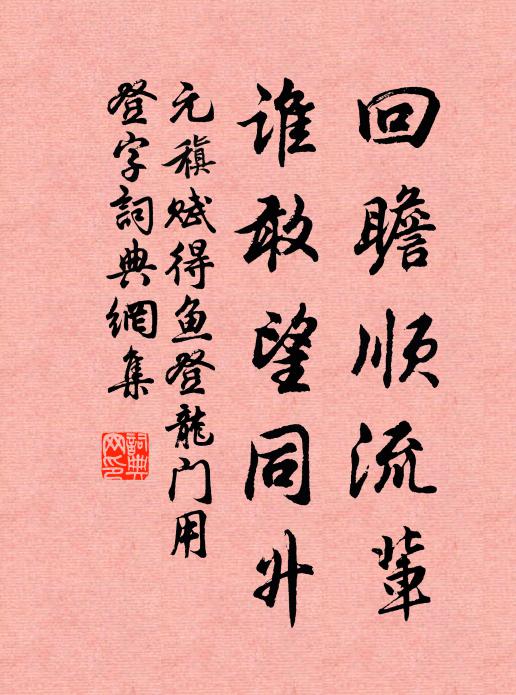 回瞻顺流輩
谁敢望同升
元稹赋得鱼登龍门用
登字詞典網集
詞典
网印